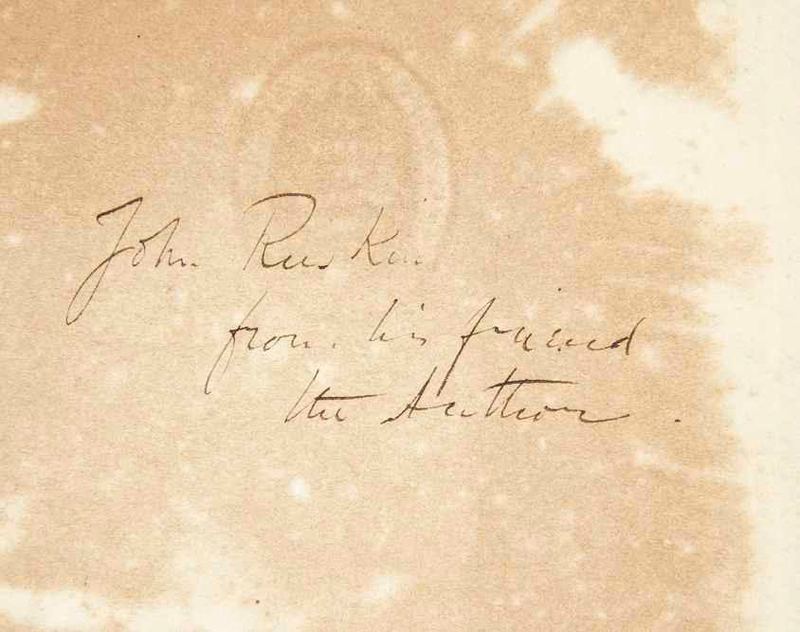 John Ruskin
from his friend
the Author.